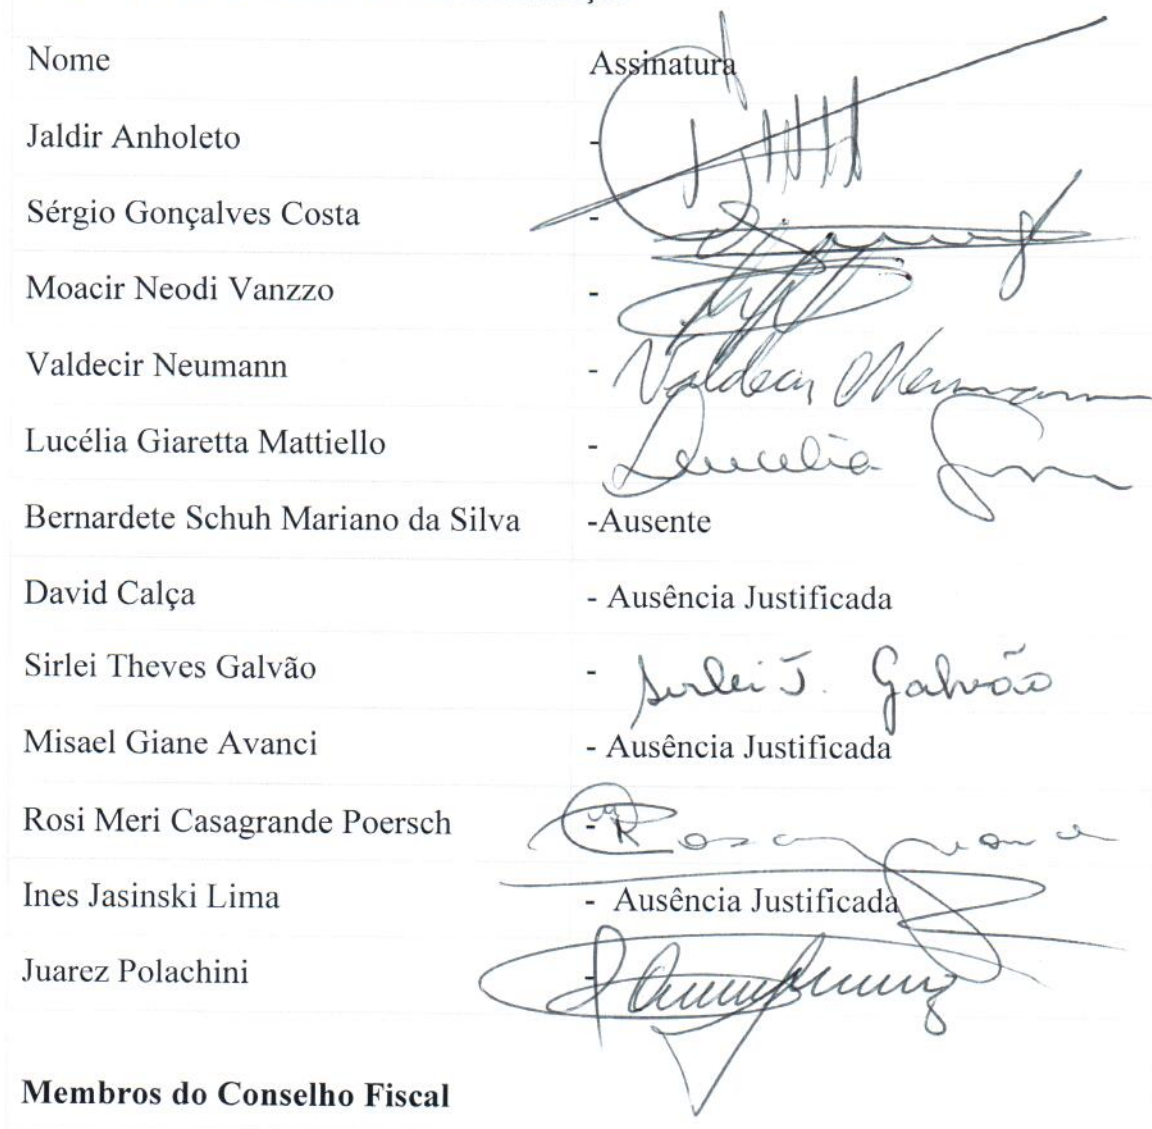 Nome Assinatura
Jaldir Anholeto -
Sérgio Gonçalves Costa -
Moacir Neodi Vanzzo -
Valdecir Neumann - Valdecir Neumann
Lucélia Giaretta Mattiello - Lucelia
Bernardete Schuh Mariano da Silva -Ausente
David Calça - Ausência Justificada
Sirlei Theves Galvão - Sirlei T. Galvão
Misael Giane Avanci - Ausência Justificada
Rosi Meri Casagrande Poersch -
Ines Jasinski Lima - Ausência Justificada
Juarez Polachini -
Membros do Conselho Fiscal